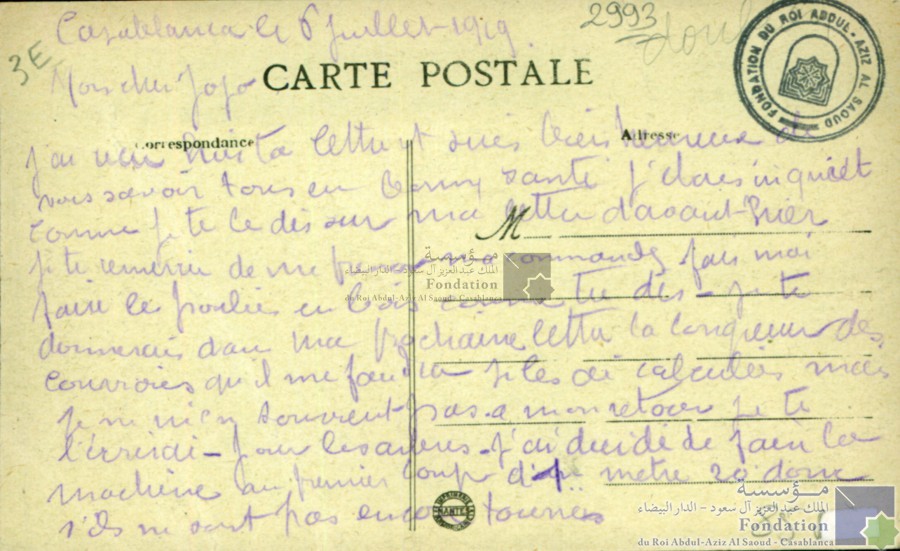 2993
Casablanca le 6 Juillet 1919
3E
Mon cher Jojo
CARTE POSTALE
FONDATION DU ROI ABDUL-AZIZ AL SAOUD
Correspondance
Adresse
J'ai reçu ta lettre et suis bien heureux de
vous savoir tous en bonne santé j'étais inquiet
comme je te le dis sur ma lettre d'avant-hier
M
je te remercie de me ma commande fais moi
faire les poulies en bois comme tu dis - je te
donnerais dans ma prochaine lettre la longueur des
courroies qu'il me faudra je les ai calculées mais
je ne m'en souvient pas a mon retour je te
l'écrirai - pour les arbres - j'ai décidé de faire la
machine au premier coup d' metre 20 donc
s'ils ne sont pas encore tournés
مؤسسة
الملك عبد العزيز آل سعود - الدار البيضاء
Fondation
du Roi Abdul-Aziz Al Saoud - Casablanca
مؤسسة
الملك عبد العزيز آل سعود - الدار البيضاء
Fondation
du Roi Abdul-Aziz Al Saoud - Casablanca